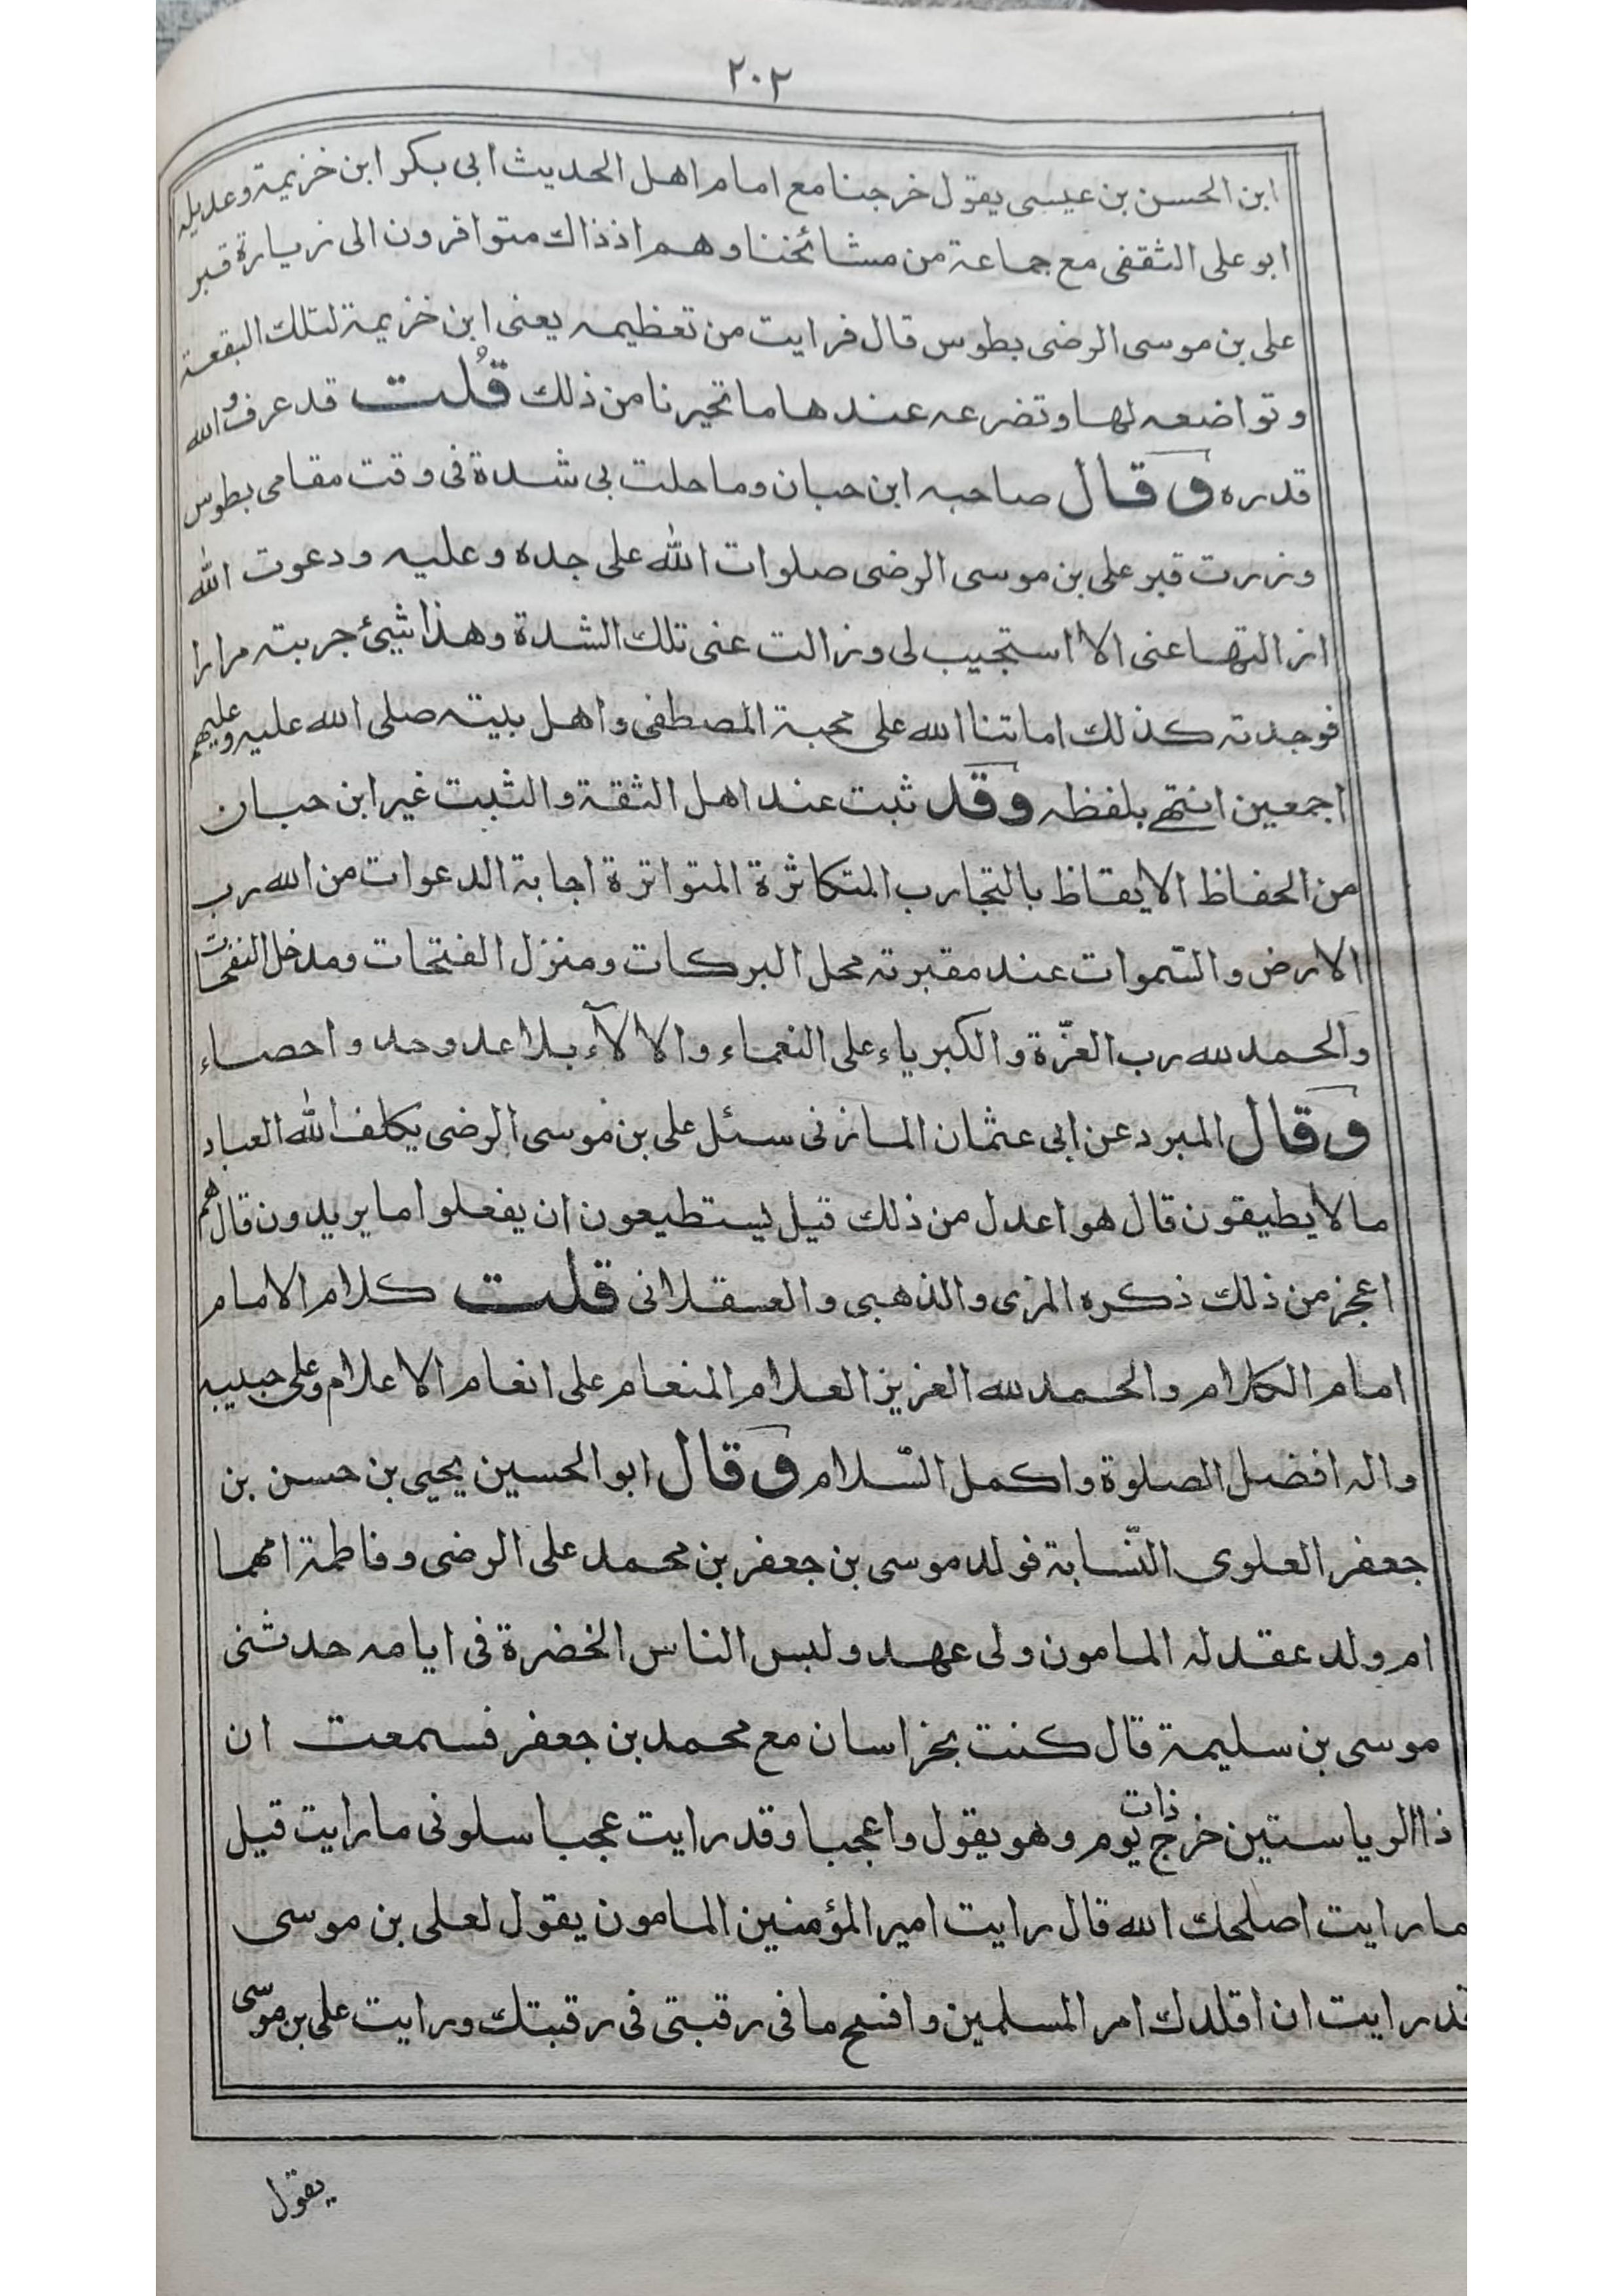 ٢٠٢
ابن الحسن بن عيسى يقول خرجنا مع امام اهل الحديث ابى بكر ابن خزيمة وعديله
ابو على الثقفى مع جماعة من مشائخنا وهم اذ ذاك متوافرون الى زيارة قبر
على بن موسى الرضى بطوس قال فرايت من تعظيمه يعنى ابن خزيمة لتلك البقعة
وتواضعه لها وتضرعه عندها ما تحيرنا من ذلك قلت قد عرف والله
قدره وقال صاحبه ابن حبان وما حلت بى شدة فى وقت مقامى بطوس
وزرت قبر على بن موسى الرضى صلوات الله على جده وعليه ودعوت الله
ازالتها عنى الا استجيب لى وزالت عنى تلك الشدة وهذا شيئ جربته مرارا
فوجدته كذلك اماتنا الله على محبة المصطفى واهل بيته صلى الله عليه وعليهم
اجمعين انتهى بلفظه وقد ثبت عند اهل الثقة والثبت غير ابن حبان
من الحفاظ الايقاظ بالتجارب المتكاثرة المتواترة اجابة الدعوات من الله رب
الارض والسّموات عند مقبرته محل البركات ومنزل الفتحات ومدخل النفحات
والحمد لله رب العزّة والكبرياء على النعماء والالآء بلا عد وحد واحصاء
وقال المبرد عن ابى عثمان المازنى سئل على بن موسى الرضى يكلف الله العباد
ما لا يطيقون قال هو اعدل من ذلك قيل يستطيعون ان يفعلوا ما يريدون قال هم
اعجز من ذلك ذكره المزى والذهبى والعسقلانى قلت كلام الامام
امام الكلام والحمد لله العزيز العلام المنعام على انعام الاعلام وعلى حبيبه
واله افضل الصلوة واكمل السّلام وقال ابو الحسين يحيى بن حسن بن
جعفر العلوى النّسابة فولد موسى بن جعفر بن محمد على الرضى وفاطمة امهما
ام ولد عقد له المامون ولى عهد ولبس الناس الخضرة فى ايامه حدثنى
موسى بن سليمة قال كنت بخراسان مع محمد بن جعفر فسمعت ان
ذا الرياستين خرج ذات يوم وهو يقول واعجبا وقد رايت عجبا سلونى ما رايت قيل
ما رايت اصلحك الله قال رايت امير المؤمنين المامون يقول لعلى بن موسى
قد رايت ان اقلدك امر المسلمين وافسح ما فى رقبتى فى رقبتك ورايت على بن موسى
يقول